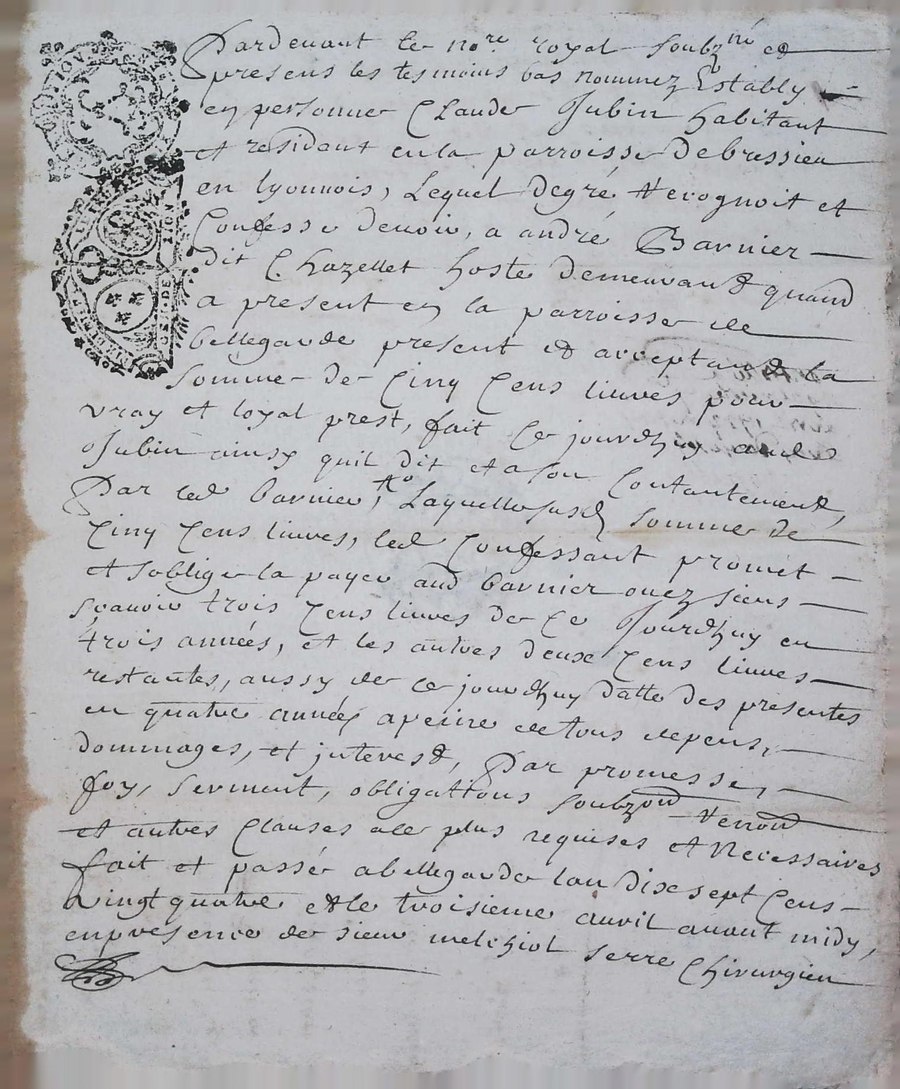 Pardevant le no.re royal soubz.né et
presens les tesmoins bas nommez Estably
en personne Claude Jubin habitant
et residant en la parroisse de bressieu
en lyonnois, Lequel de gré recognoit et
Confesse devoir, a andré Barnier
dit Chazellet hoste demeurant quand
a present en la parroisse de
bellegarde present et acceptant la
somme de Cinq Cens livres pour
vray et loyal prest, fait ce jourdhuy aud
Jubin ainsy quil dit et a son Contantement,
Par led barnier, Laquelle susd somme de
Cinq Cens livres, led Confessant promet
et soblige la payer aud barnier ou ez siens
sçavoir trois Cens livres de Ce Jourdhuy en
trois années, et les autres deux Cens livres
restantes, aussy de ce jourdhuy datte des presentes
en quatre années a peine de tous depens,
dommages, et interest, Par promesse,
foy, serment, obligations soubzon renon
et autres Clauses a ce plus requises et Necessaires
fait et passé a bellegarde lan dix sept Cens
vingt quatre et le troisieme avril avant midy,
en présence de sieur melchiol serre Chirurgien